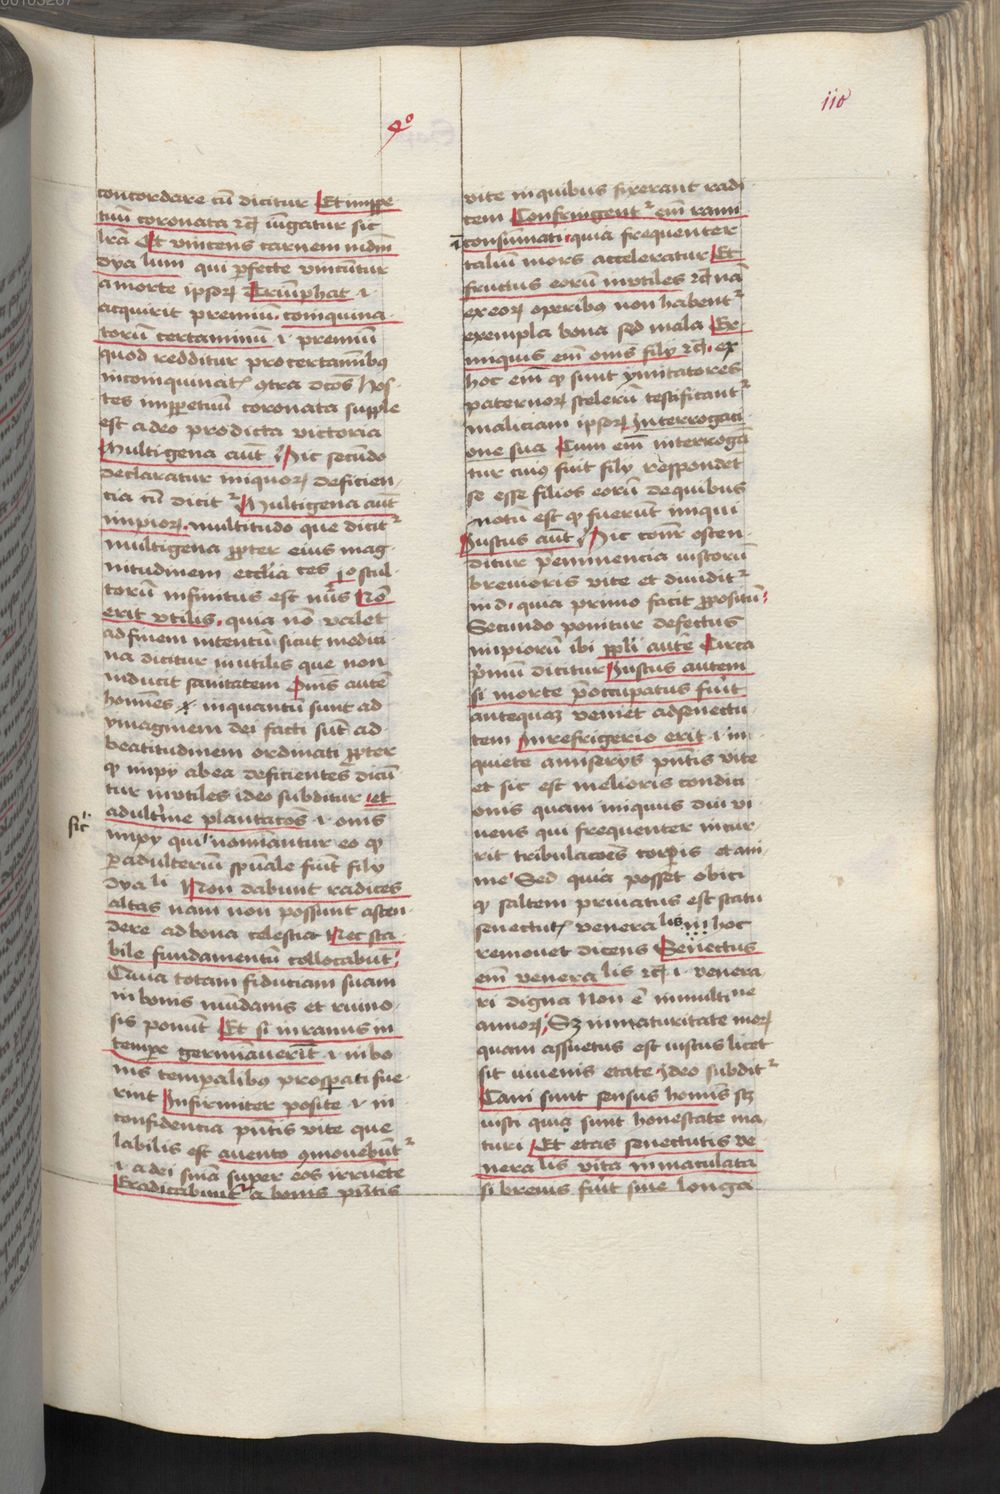 00103267
110
4º
concordare cū dicitur Et inppe
tuū coronata ⁊cͣ iūgatur sic
lrā Et vincens carnem mdm̄
dya lum qui pfecte vincūtur
a morte ipsoꝝ Triūphat .i.
acquirit premiū coinquina
torū certaminū .i. premiū
quod redditur pro certamībꝰ
incoinquinatꝭ ꝯtra dcōs hos
tes inppetuū coronata supple
est a deo prodicta victoria
Multigena aūt Hic secūdo
declaratur iniquoꝝ deficien
cia cū dicitᷣ Multigena aūt
impioꝝ multitudo que dicitᷣ
multigena ppter eius mag
nitudinem ecclia tes jº stul
torū infinitus est nūs Nō
erit vtilis quia nō valet
ad finem intentū sicut medici
na dicitur inutilis que non
inducit sanitatem Omīs autē
homīes inquantū sunt ad
ymaginem dei facti sūt ad
beatitudinem ordinati ppter
ꝙ impy ab ea deficientes dicū
tur inutiles ideo subditur et
sic
adultīne plantacōs .i. omīs
impy qui nominantur eo ꝙ
ꝑ adulteriū spūale fiūt fily
dya li Non dabunt radices
altas nam non possunt asten
dere ad bona celestia Nec sta
bile fundamentū collocabūt
Quia totam fiduciam suam
in bonis mūdanis et ruino
sis ponūt Et si in ramis in
tempe germīauerīt .i. in bo
nis tempalibꝰ prosperati fue
rint Infirmiter posite .i. in
confidencia pn̄tis vite que
labilis est a uento ꝯmouebūtᷣ
.i. a dei snīa super eos irruēte
Eradicabuntᷣ a bonis pn̄tis
vite in quibus fixerant radi
cem Confringentᷣ em̄ rami
ī consūmati quia frequenter
taliū mors acceleratur Et
fructus eorū inutiles ⁊cͣ nā
ex eoꝝ operibꝰ non habentᷣ
exempla bona sed mala Ex
iniquis em̄ omīs fily ⁊cͣ ex
hoc em̄ ꝙ sunt ymitatores
paternoꝝ stelerū testificantᷣ
maliciam ipsoꝝ Interrogaci
one sua Cum em̄ interroga
tur cuiꝰ fiūt fily respondet
se esse filios eorū de quibus
notū est ꝙ fuerūt iniqui
Justus aūt Hic com̄r osten
ditur pemīnencia iustorū
brevioris vite et diuiditᷣ
in d quia primo facit ppositū
Secundo ponitur defectus
impiorū ibi ppli autē Circa
pmū dicitur Justus autem
si morte poccupatus fuīt
antequaꝫ veniet ad senectu
tem In refrigerio erit .i. in
quiete a miserys pn̄tis vite
et sic est melioris condici
onis quam iniquus diu vi
uens qui frequenter incur
rit tribulacōes corpis et ani
me Sed quia posset obici
ꝙ saltem priuatus est statu
senectutꝭ venera lis hoc
remouet dicens Senectus
em̄ venera lis ⁊cͣ .i. venera
ri digna Non ē in multi ne
annoꝝ Sꝫ in maturitate moꝝ
quam assuetus est iustus licet
sit iuuenis etate Ideo subditᷣ
Cani sunt sensus homīs sꝫ
iusti quia sunt honestate ma
turi Et etas senectutis ve
nera lis vita inmaculata
si breuis fuīt siue longa